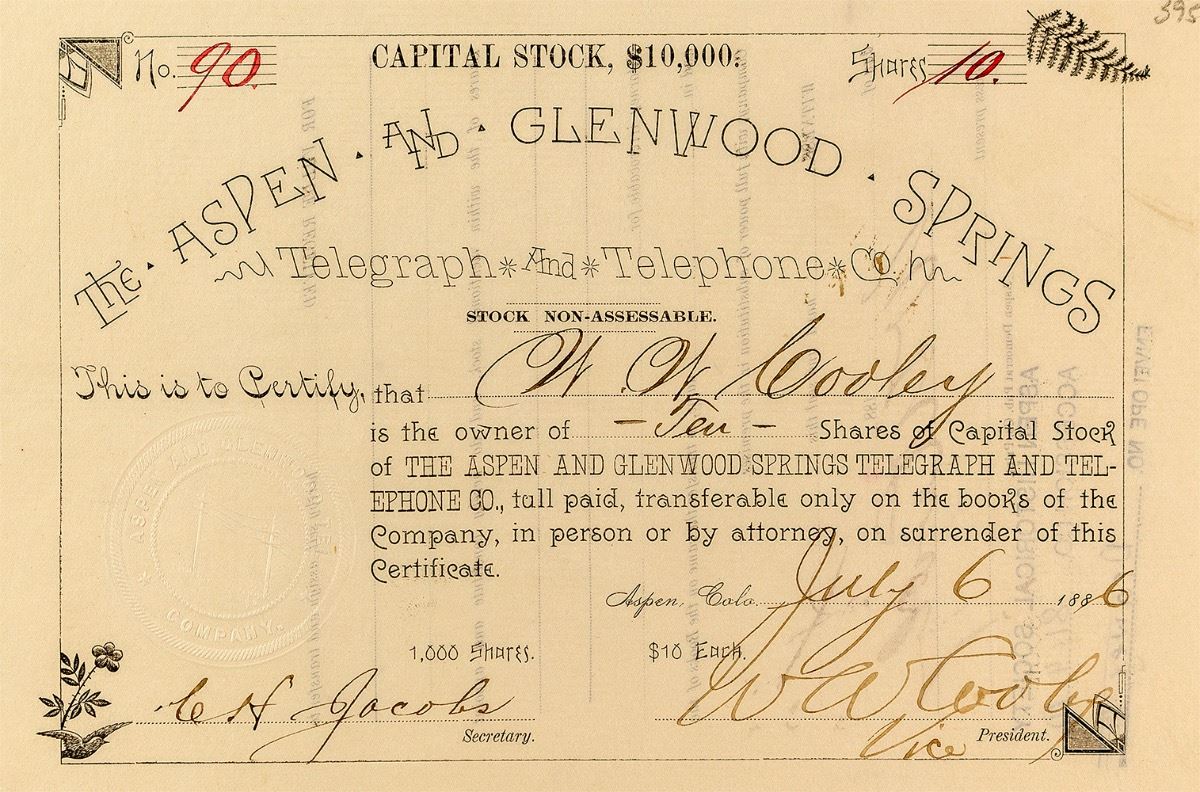 395
No. 90. CAPITAL STOCK, $10,000. Shares 10.
The · ASPEN · AND · GLENWOOD · SPRINGS
Telegraph * And * Telephone * Co.
STOCK NON-ASSESSABLE.
This is to Certify, that W. W. Cooley
is the owner of – Ten – Shares of Capital Stock
of THE ASPEN AND GLENWOOD SPRINGS TELEGRAPH AND TEL-
EPHONE CO., full paid, transferable only on the books of the
Company, in person or by attorney, on surrender of this
Certificate.
Aspen, Colo. July 6 1886
1,000 Shares. $10 Each.
C H Jacobs W W Cooley
Secretary. Vice President.
ASPEN AND GLENWOOD
COMPANY.
ENVELOPE NO.
ASPEN HISTORICAL SOCIETY